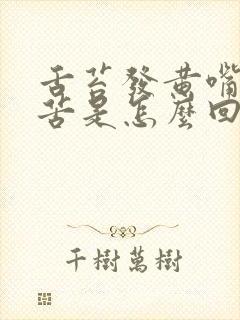 舌苔發黃嘴
苦是怎麼回
千樹萬樹